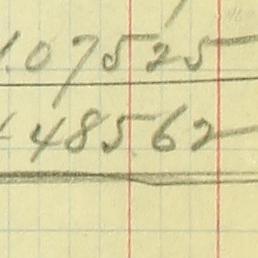 1.07525
48562